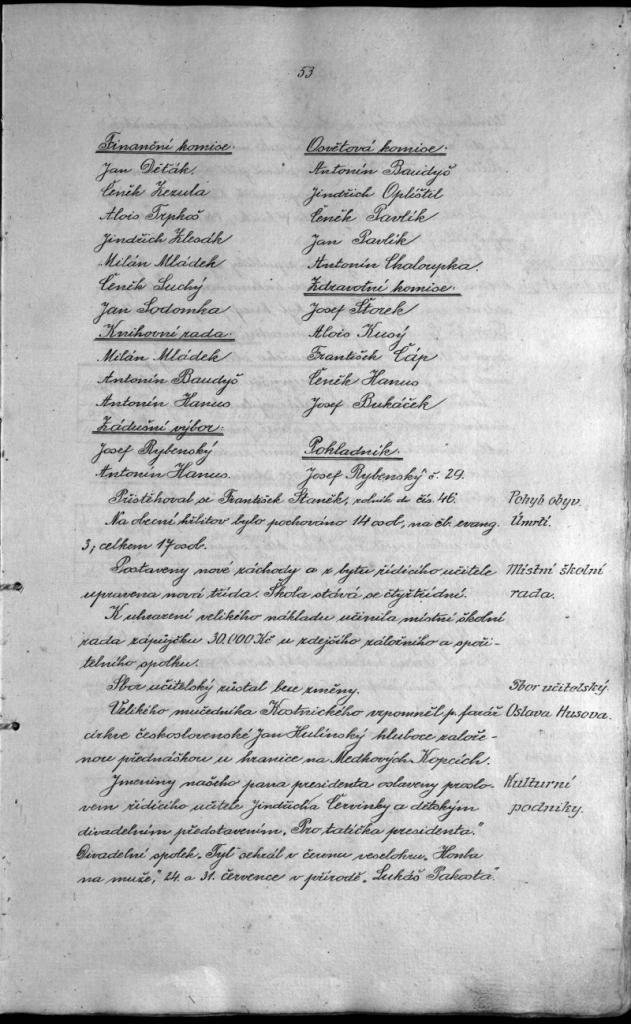 53
Finanční komise.
Jan Děták.
Čeněk Kezula
Alois Trphoš
Jindřich Klesák
Milán Mládek
Čeněk Suchý
Jan Sodomka
Knihovní rada.
Milán Mládek
Antonín Baudyš
Antonín Hanus
Zádušní výbor.
Josef Rybenský
Antonín Hanus.
Osvětová komise.
Antonín Baudyš
Jindřich Oplištil
Čeněk Pavlík
Jan Pavlík
Antonín Chaloupka.
Zdravotní komise.
Josef Štorek
Alois Kusý
František Čáp
Čeněk Hanus
Josef Bukáček
Pokladník.
Josef Rybenský č. 29.
Přistěhoval se František Staněk, rolník do čís. 46.
Pohyb obyv.
Na obecní hřbitov bylo pochováno 14 osob, na čb. evang.
Úmrtí.
3; celkem 17 osob.
Postaveny nové záchody a z bytu řídícího učitele
Místní školní
upravena nová třída. Škola stává se čtyřtřídní.
rada.
K uhrazení velikého nákladu učinila místní školní
rada zápůjčku 30.000 Kč u zdejšího záložního a spoři-
telního spolku.
Sbor učitelský zůstal beze změny.
Sbor učitelský.
Velikého mučedníka Kostnického vzpomněl p. farář
Oslava Husova.
církve československé Jan Hulínský hluboce založe-
nou přednáškou u hranice na Medkových Kopcích.
Jmeniny našeho pana presidenta oslaveny proslo-
Kulturní
vem řídícího učitele Jindřicha Červinky a dětským
podniky.
divadelním představením „Pro tatíčka presidenta."
Divadelní spolek „Tyl" sehrál v červnu veselohru „Honba
na muže," 24. a 31. července v přírodě „Lukáš Pakosta".